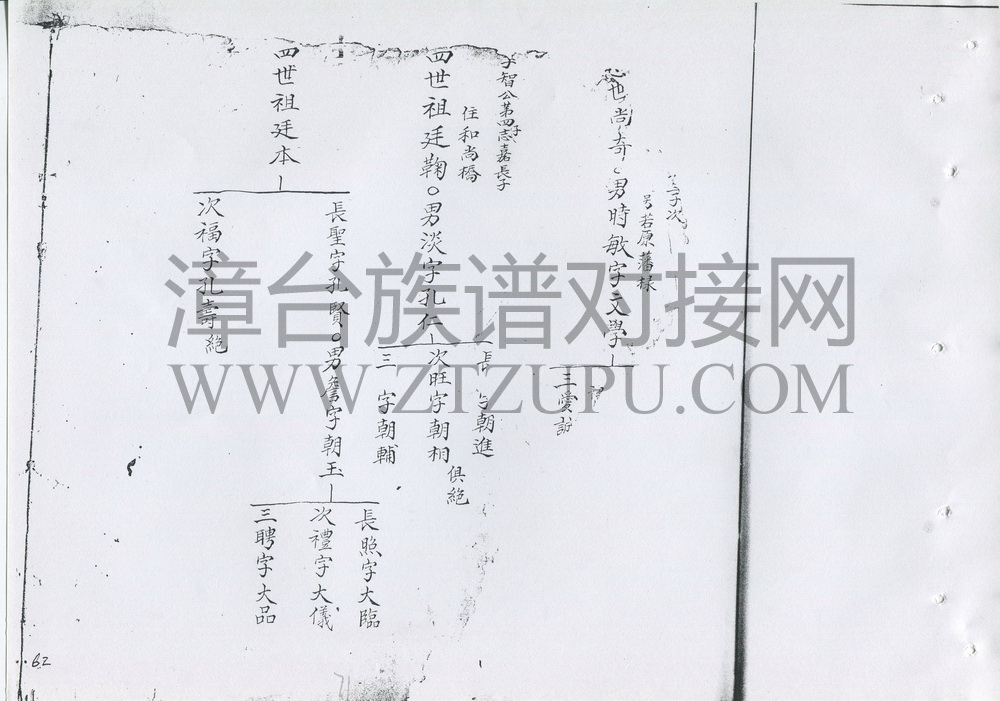 尚奇 男時敏字文學
號若原藩祿
三愛
智公第四子志嘉長子
住和尚橋
四世祖廷鞠○男淡字孔仁
長 字朝進
次旺字朝相
三 字朝輔
俱絕
四世祖廷本
長聖字孔賢○男詹字朝玉
次福字孔壽絕
長照字大臨
次禮字大儀
三聘字大品
62
漳台族谱对接网
WWW.ZTZUPU.COM